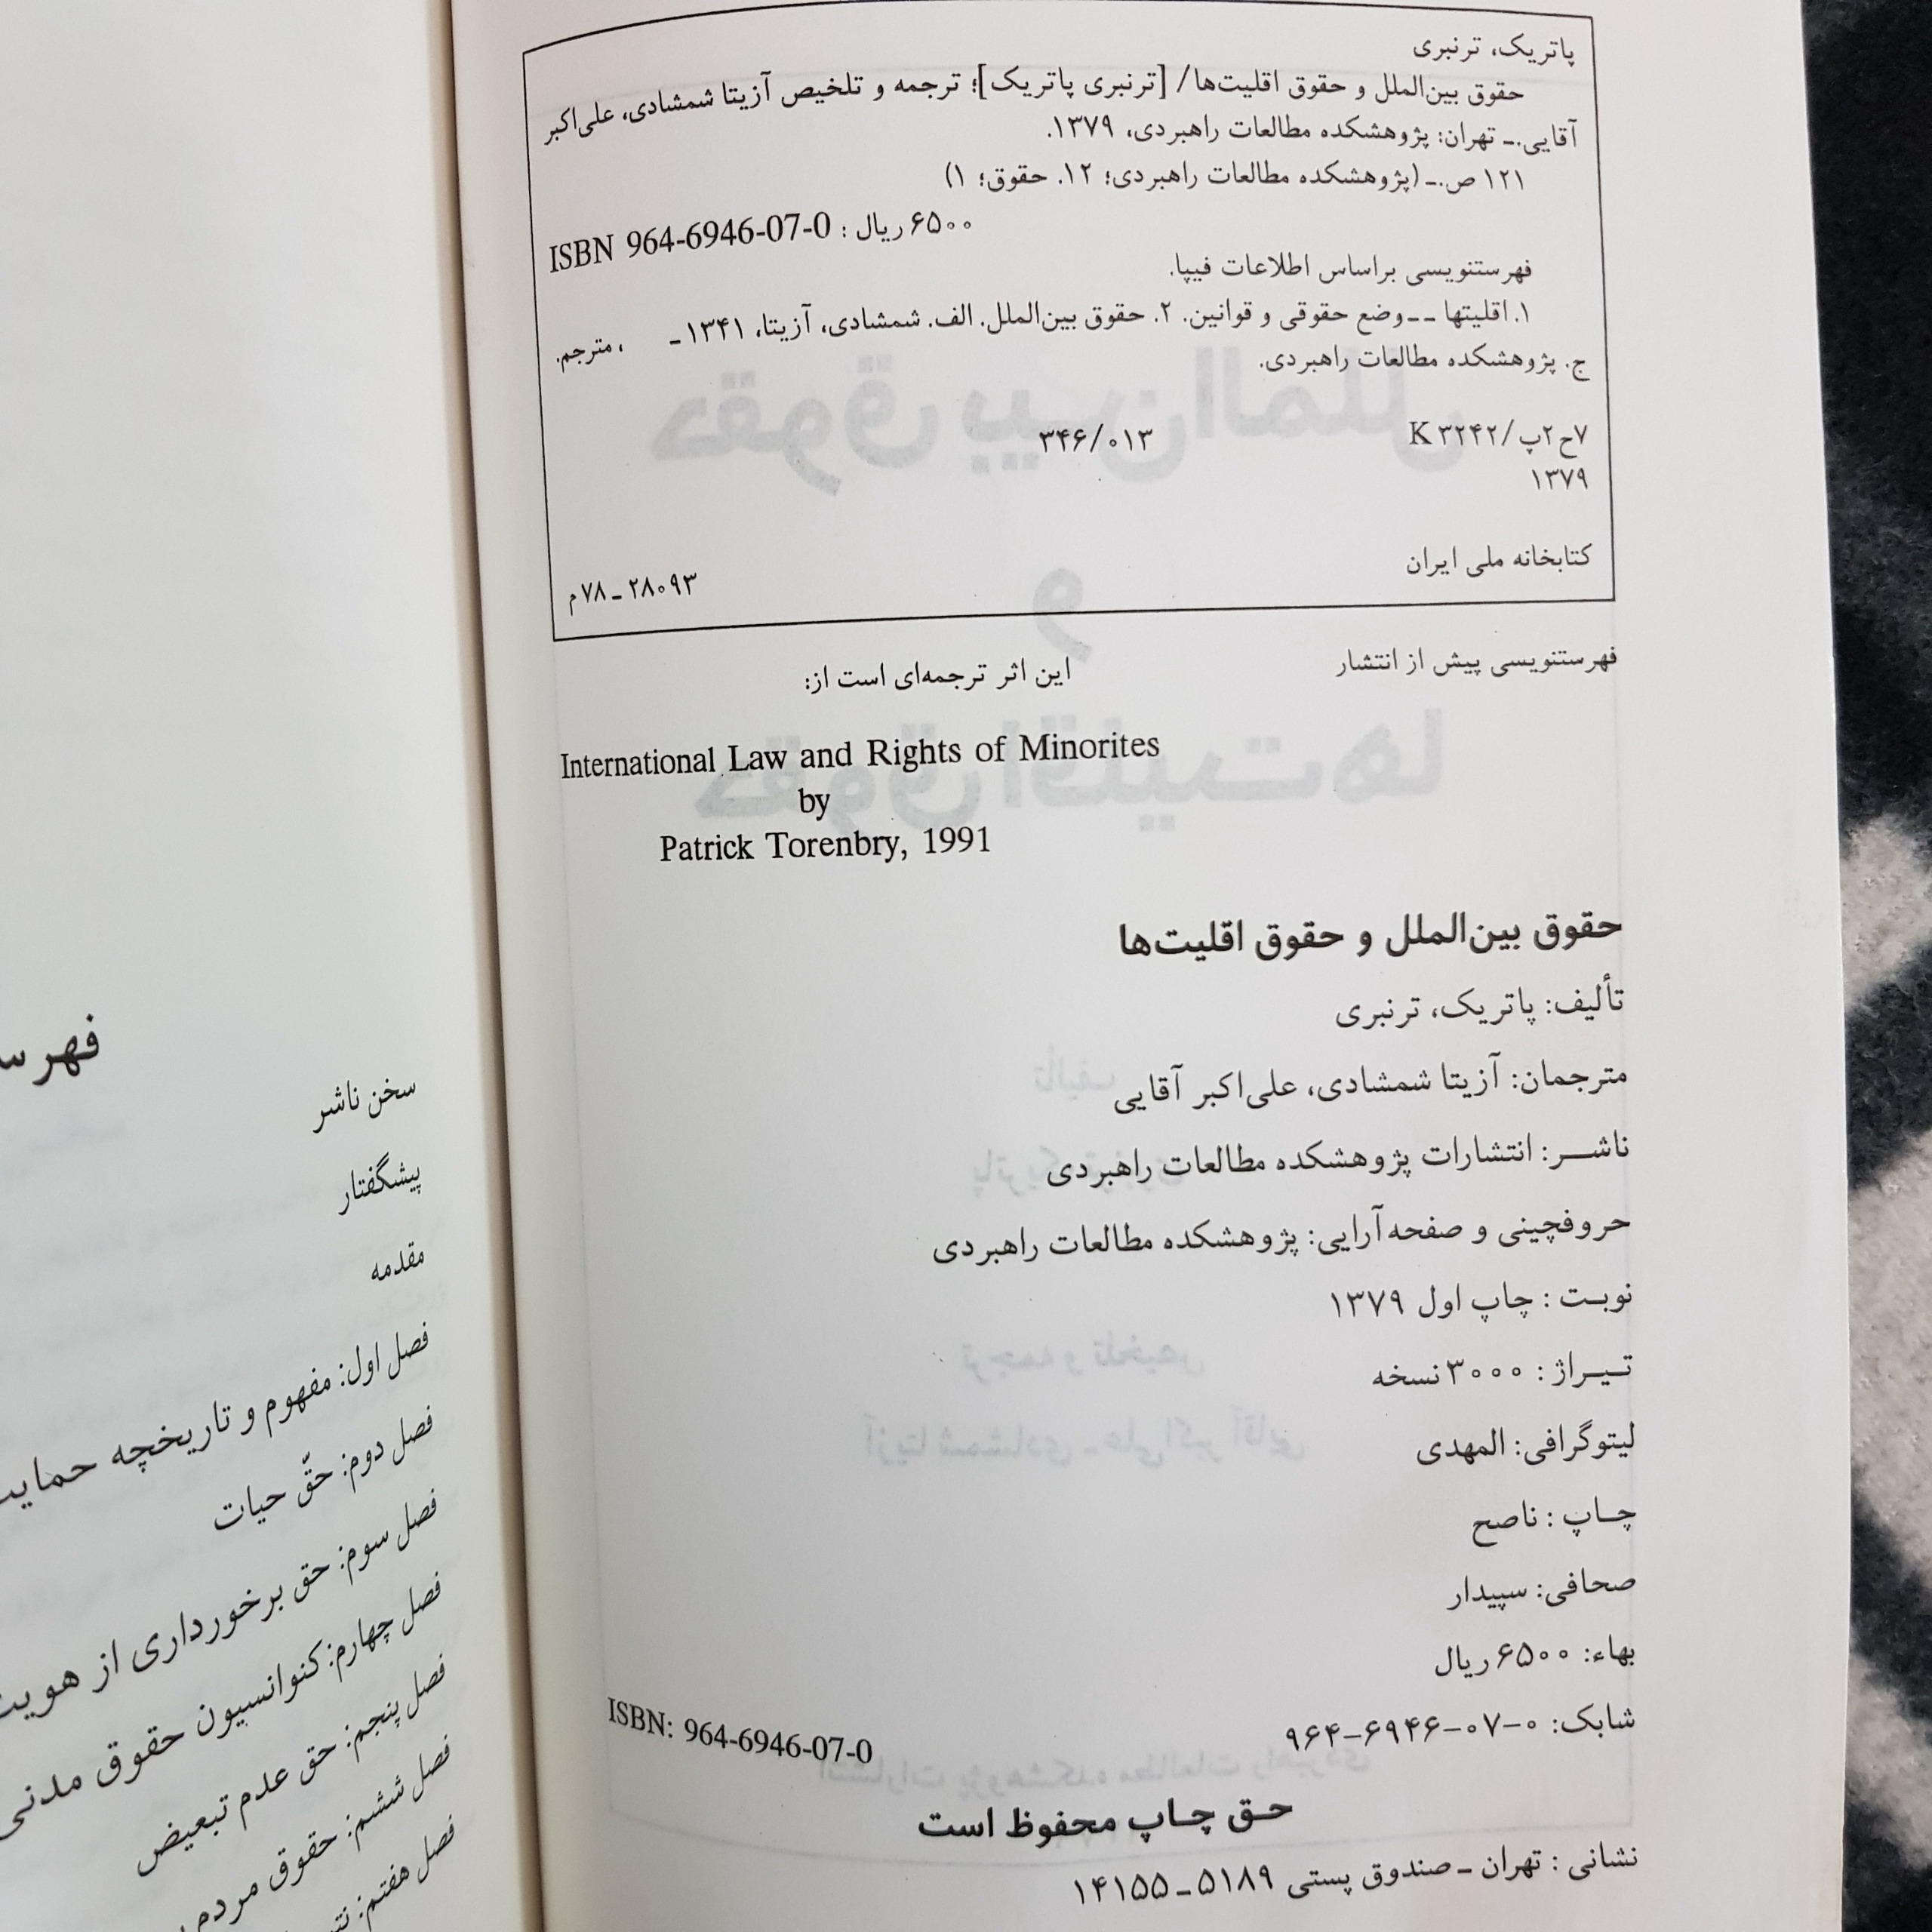 پاتریک، ترنبری
حقوق بین‌الملل و حقوق اقلیت‌ها/ [ترنبری پاتریک]؛ ترجمه و تلخیص آزیتا شمشادی، علی‌اکبر
آقایی._ تهران: پژوهشکده مطالعات راهبردی، ۱۳۷۹.
۱۲۱ ص._ (پژوهشکده مطالعات راهبردی؛ ۱۲. حقوق؛ ۱)
۶۵۰۰ ریال : ISBN 964-6946-07-0
فهرستنویسی براساس اطلاعات فیپا.
۱. اقلیتها __ وضع حقوقی و قوانین. ۲. حقوق بین‌الملل. الف. شمشادی، آزیتا، ۱۳۴۱ _ ، مترجم.
ج. پژوهشکده مطالعات راهبردی.
۷ح۲پ/ K ۳۲۴۲ ۳۴۶/۰۱۳
۱۳۷۹
کتابخانه ملی ایران ۲۸۰۹۳ _ ۷۸ م
فهرستنویسی پیش از انتشار
این اثر ترجمه‌ای است از:
International Law and Rights of Minorites
by
Patrick Torenbry, 1991
حقوق بین‌الملل و حقوق اقلیت‌ها
تألیف: پاتریک، ترنبری
مترجمان: آزیتا شمشادی، علی‌اکبر آقایی
ناشـــر: انتشارات پژوهشکده مطالعات راهبردی
حروفچینی و صفحه‌آرایی: پژوهشکده مطالعات راهبردی
نوبـت : چاپ اول ۱۳۷۹
تـیـراژ : ۳۰۰۰ نسخه
لیتوگرافی: المهدی
چــاپ : ناصح
صحافی: سپیدار
بهاء: ۶۵۰۰ ریال
شابک: ۰-۰۷-۶۹۴۶-۹۶۴ ISBN: 964-6946-07-0
حـق چـاپ محفوظ است
نشانی : تهران _ صندوق پستی ۵۱۸۹ _ ۱۴۱۵۵
سخن ناشر
پیشگفتار
مقدمه
فصل اول: مفهوم و تاریخچه
فصل دوم: حقّ حیات
فصل سوم: حق برخورداری از
فصل چهارم: کنوانسیون حقوق مدنی
فصل پنجم: حق عدم تبعیض
فصل ششم: حقوق
فصل هفتم: